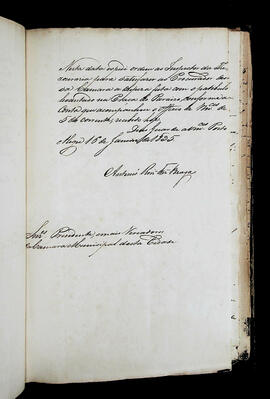 Nesta data expeço ordem ao Inspector da The-
souraria para satisfazer ao Procurador des-
sa Camara a despesa feita com o patibulo
levantado na Praça do Paraizo, conforme a
conta que acompanhou o officio de Vmces de
5 do corrente, recebido hoje.
Deos Guarde a Vmces Porto
Alegre 16 de Janeiro de 1835.
Antonio Roiz Fernandes Braga
Snres Presidente, e mais Vereadores
da Camara Municipal desta Cidade